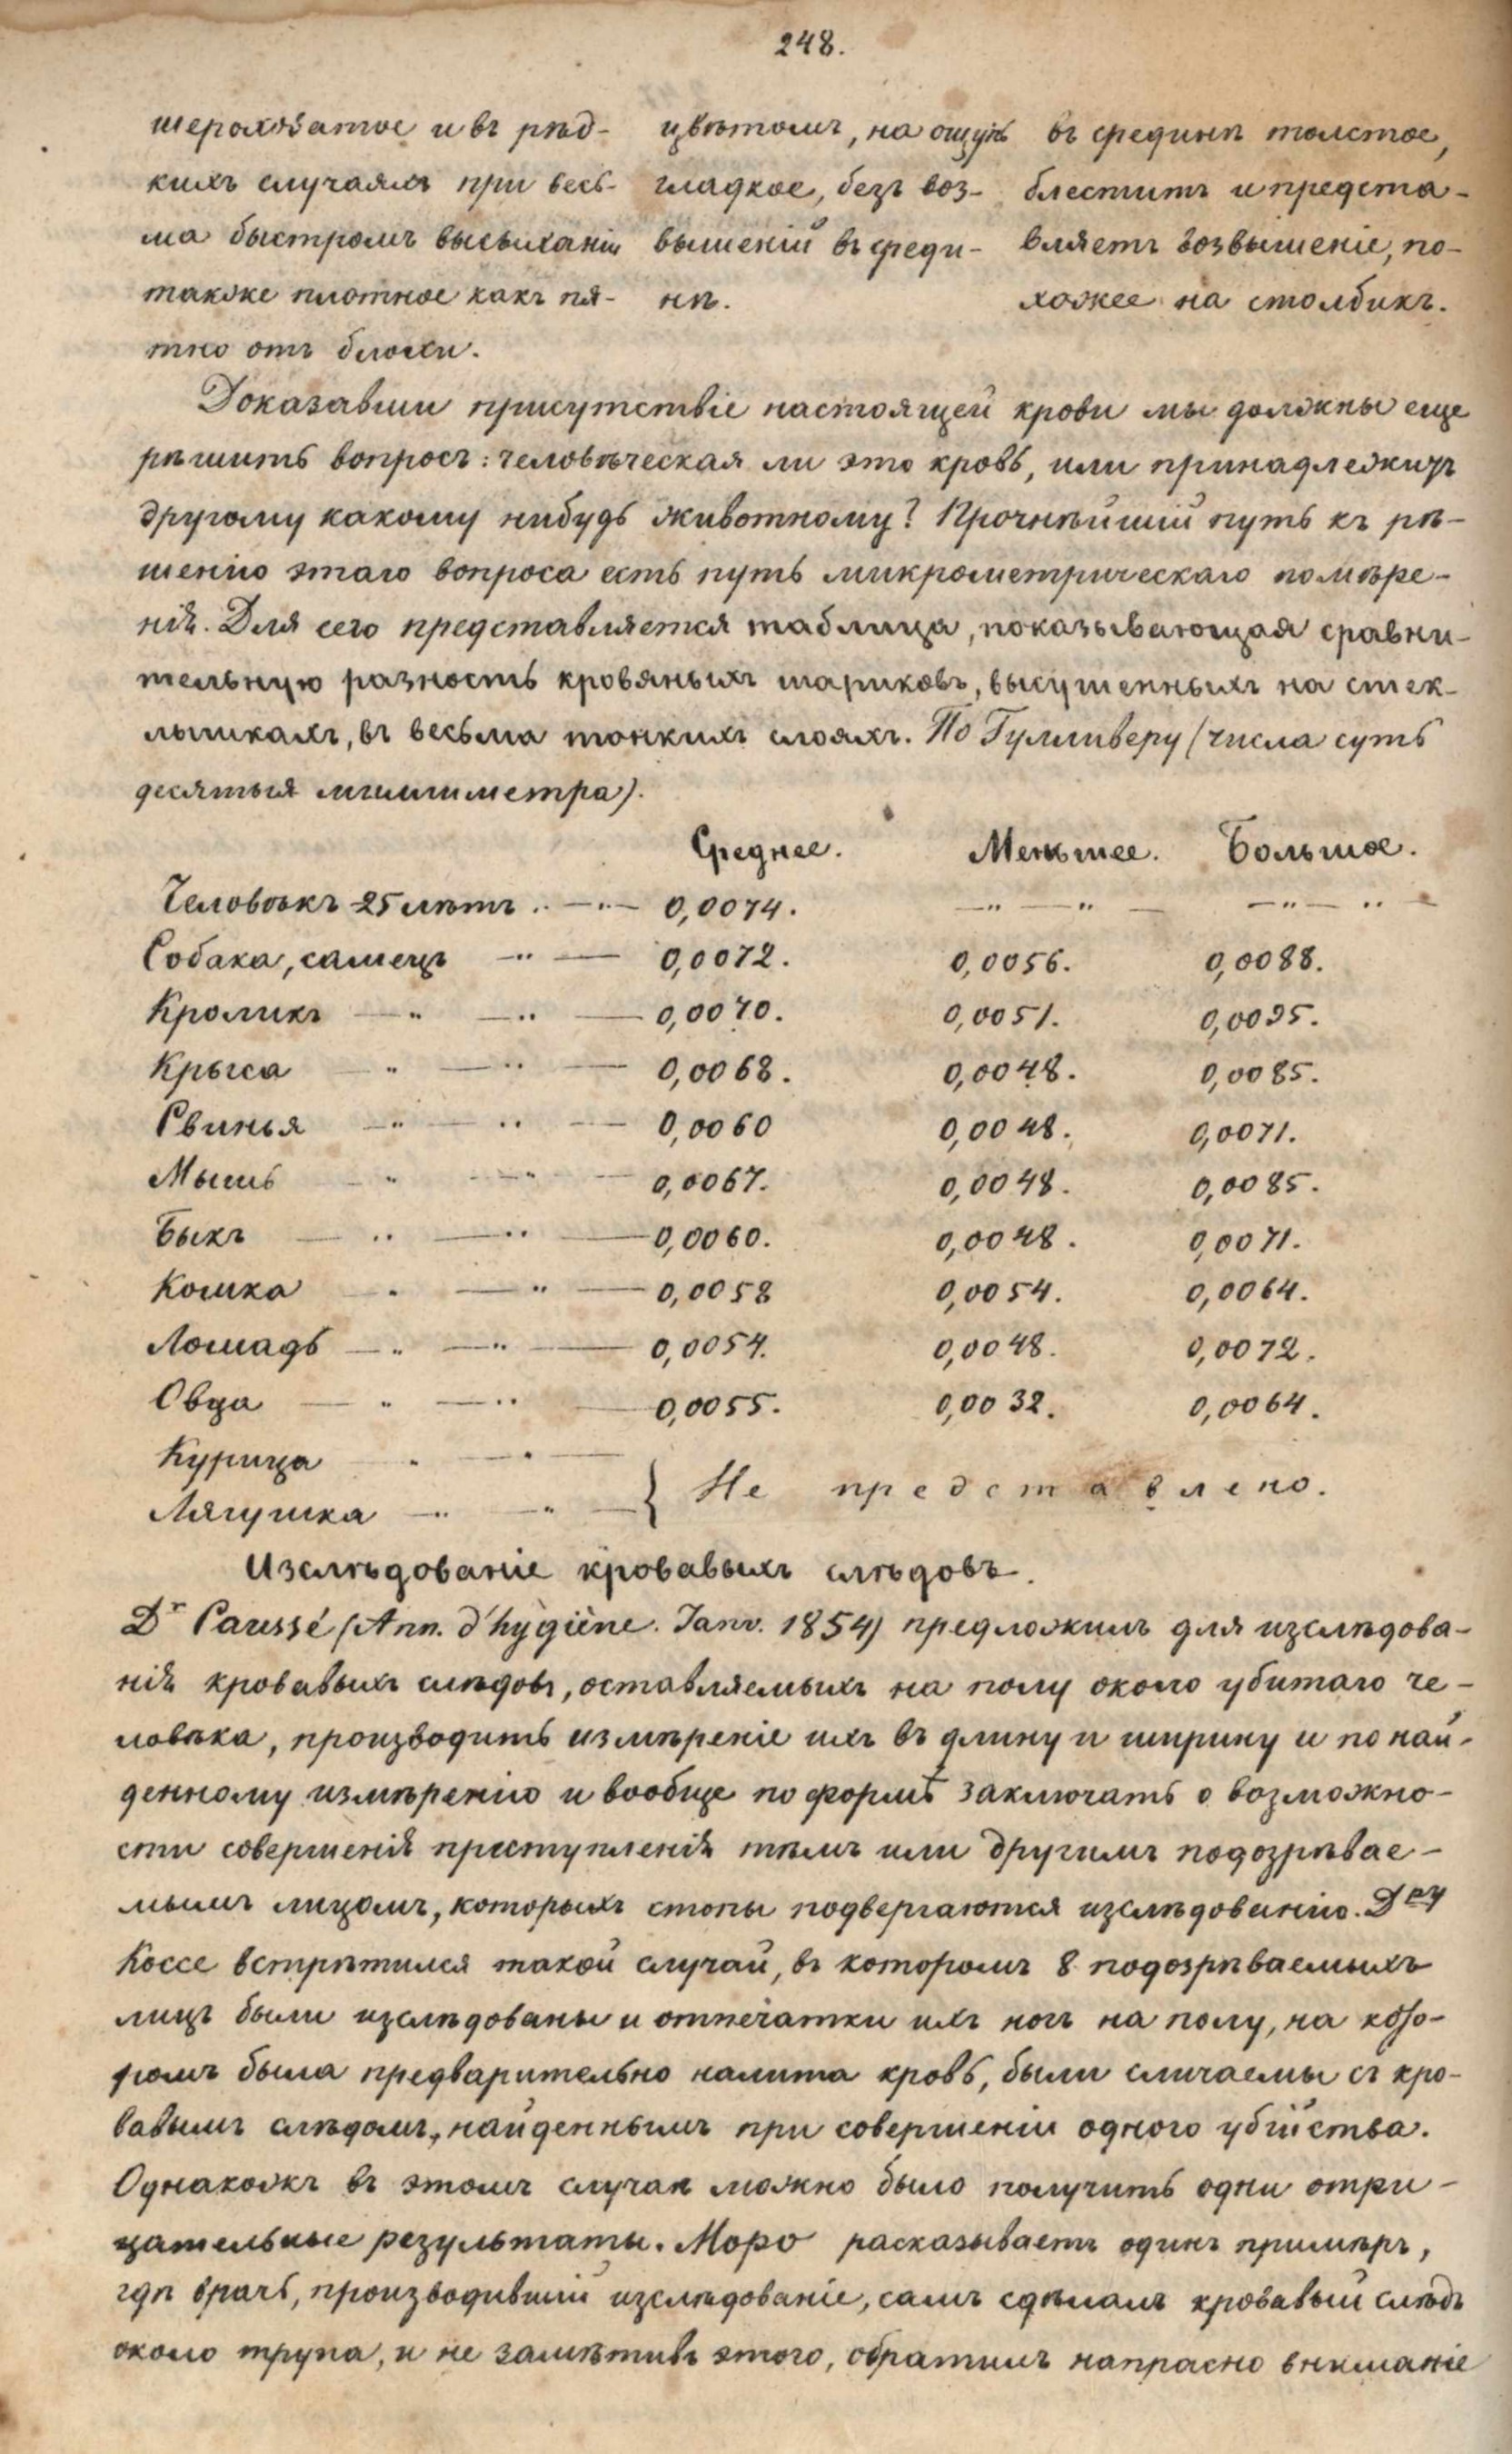 248.
шероховатое и въ рѣд-
кихъ случаяхъ при весь-
ма быстромъ высыханіи
такоке плотное какъ пя-
тно отъ блохи.
цвѣтомъ, на ощупь
гладкое, безъ воз-
вышеній въ среди-
нѣ.
въ срединѣ толстое,
блеститъ и предста-
вляетъ возвышеніе, по-
хожее на столбикъ.
Доказавши присутствіе настоящей крови мы должны еще
рѣшить вопросъ: человѣческая ли это кровь, или принадлежитъ
другому какому нибудь животному? Прочнѣйшій путь къ рѣ-
шенію этаго вопроса есть путь микрометрическаго помѣре-
нія. Для сего представляется таблица, показывающая сравни-
тельную разность кровяныхъ шариковъ, высушенныхъ на стек-
лышкахъ, въ весьма тонкихъ слояхъ. По Гулливеру (числа суть
десятыя миллиметра).
Среднее. Меньшее. Большое.
Человѣкъ 25 лѣтъ .. — .. — 0,0074. — .. — .. — — .. — .. —
Собака, самецъ — .. — 0,0072. 0,0056. 0,0088.
Кроликъ — .. — .. — 0,0070. 0,0051. 0,0095.
Крыса .. — .. — 0,0068. 0,0048. 0,0085.
Свинья — .. — .. — 0,0060 0,0048. 0,0071.
Мышь — .. — .. — 0,0067. 0,0048. 0,0085.
Быкъ — .. — .. — 0,0060. 0,0048. 0,0071.
Кошка . — .. — 0,0058 0,0054. 0,0064.
Лошадь — .. — .. — 0,0054. 0,0048. 0,0072.
Овца — .. — .. — 0,0055. 0,0032. 0,0064.
Курица — . — . —
Лягушка — .. — .. — { Не представлено.
Изслѣдованіе кровавыхъ слѣдовъ.
Dr Caussé (Ann. d'hygiène. Janv. 1854) предложилъ для изслѣдова-
нія кровавыхъ слѣдовъ, оставляемыхъ на полу около убитаго че-
ловѣка, производить измѣреніе ихъ въ длину и ширину и по най-
денному измѣренію и вообще по формѣ заключать о возможно-
сти совершенія преступленія тѣмъ или другимъ подозрѣвае-
мымъ лицомъ, которыхъ стопы подвергаются изслѣдованію. Dру
Коссе встрѣтился такой случай, въ которомъ 8 подозрѣваемыхъ
лицъ были изслѣдованы и отпечатки ихъ ногъ на полу, на кото-
ромъ была предварительно налита кровь, были сличаемы съ кро-
вавымъ слѣдомъ, найденнымъ при совершеніи одного убійства.
Однакожъ въ этомъ случаѣ можно было получить одни отри-
цательные результаты. Моро расказываетъ одинъ примѣръ,
гдѣ врачъ, производившій изслѣдованіе, самъ сдѣлалъ кровавый слѣдъ
около трупа, и не замѣтивъ этого, обратилъ напрасно вниманіе